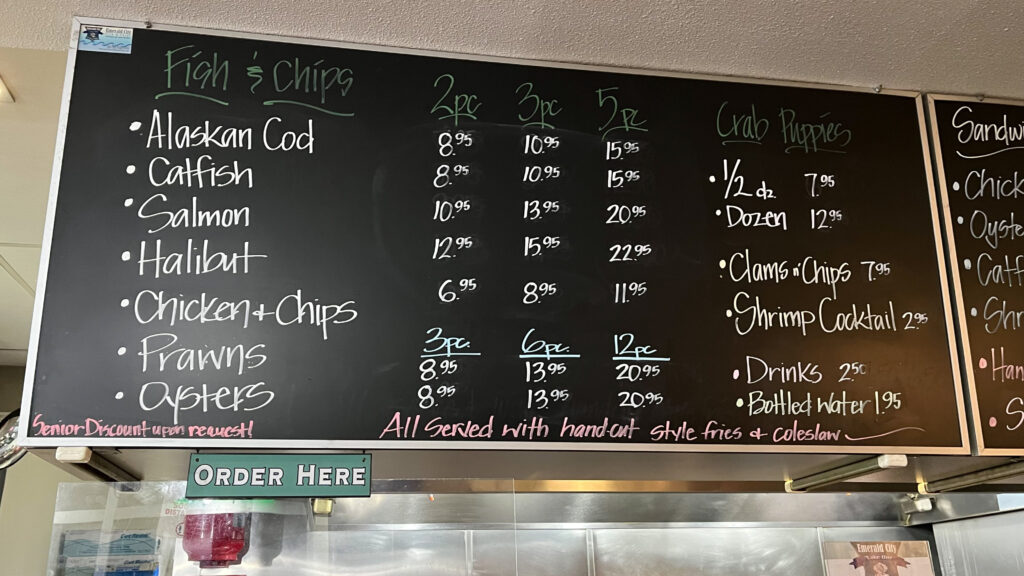 Emerald City
Fish & Chips 2pc 3pc 5pc
• Alaskan Cod 8.95 10.95 15.95
• Catfish 8.95 10.95 15.95
• Salmon 10.95 13.95 20.95
• Halibut 12.95 15.95 22.95
• Chicken + Chips 6.95 8.95 11.95
3pc. 6pc. 12pc
• Prawns 8.95 13.95 20.95
• Oysters 8.95 13.95 20.95
Senior Discount upon request!
All Served with hand-cut style fries & coleslaw
Crab Puppies
• 1/2 dz. 7.95
• Dozen 12.95
• Clams n' Chips 7.95
• Shrimp Cocktail 2.95
• Drinks 2.50
• Bottled Water 1.95
ORDER HERE
Emerald City